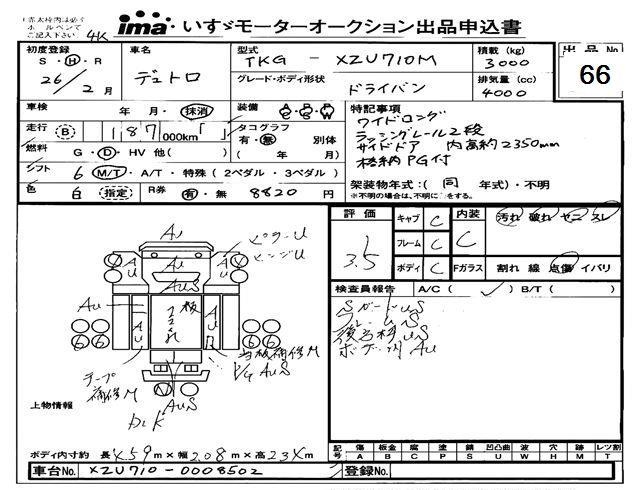 ima いすゞモーターオークション出品申込書
ご記入下さい 4K
初度登録 S・H・R 26/2月
車名 デュトロ
型式 TKG - XZU710M
グレード・ボディ形状 ドライバン
積載(kg) 3000
排気量(cc) 4000
出品No 66
車検 年 月・抹消
装備
走行 B 187 000km
タコグラフ 有・無 別体 ( 年 月)
燃料 G・D・HV 他( )
シフト 6 M/T・A/T・特殊(2ペダル・3ペダル)
色 白 指定 R券 有・無 8820 円
特記事項
ワイドロング
ラッシングレール2段
サイドドア 内高約2350mm
格納PG付
架装物年式:(同 年式)・不明
※不明の場合は、不明に○をする。
評価 3.5
キャブ C
フレーム C
ボディ C
内装 C
汚れ 破れ ヤニ スレ
Fガラス 割れ 線 点傷 イバリ
検査員報告 A/C( ✓ ) B/T( )
ボデー別AU
ピラーU
ヒンジU
AU
AUS
板
当板補修M
P/G AUS
テープ補修M
上物情報
ボディ内寸約 長 4.59m×幅2.08m×高23Xm
記号 傷A 板金B 腐C 塗P 錆S 凹凸曲U 波W 穴H 跡M レツ割T
車台No. XZU710-0008502
登録No.